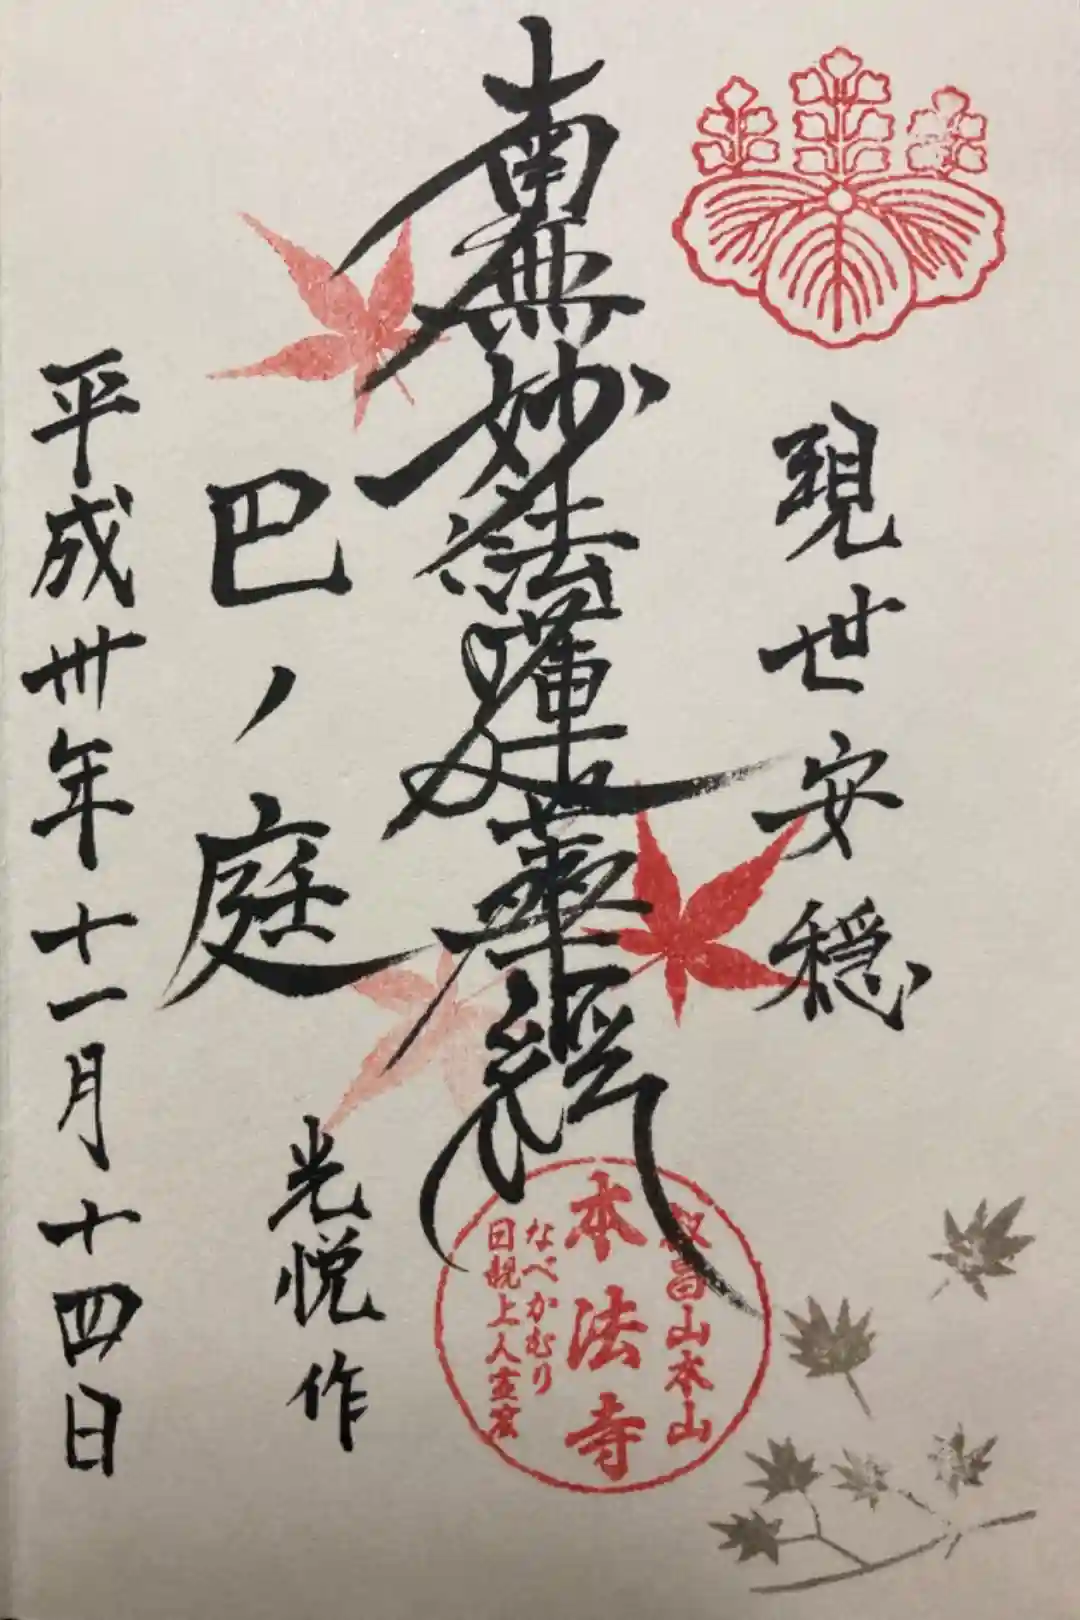 現世安穏
南無妙法蓮華経
巴ノ庭
光悦作
平成卅年十一月十四日
叡昌山本山
本法寺
なべかむり
日親上人霊窟